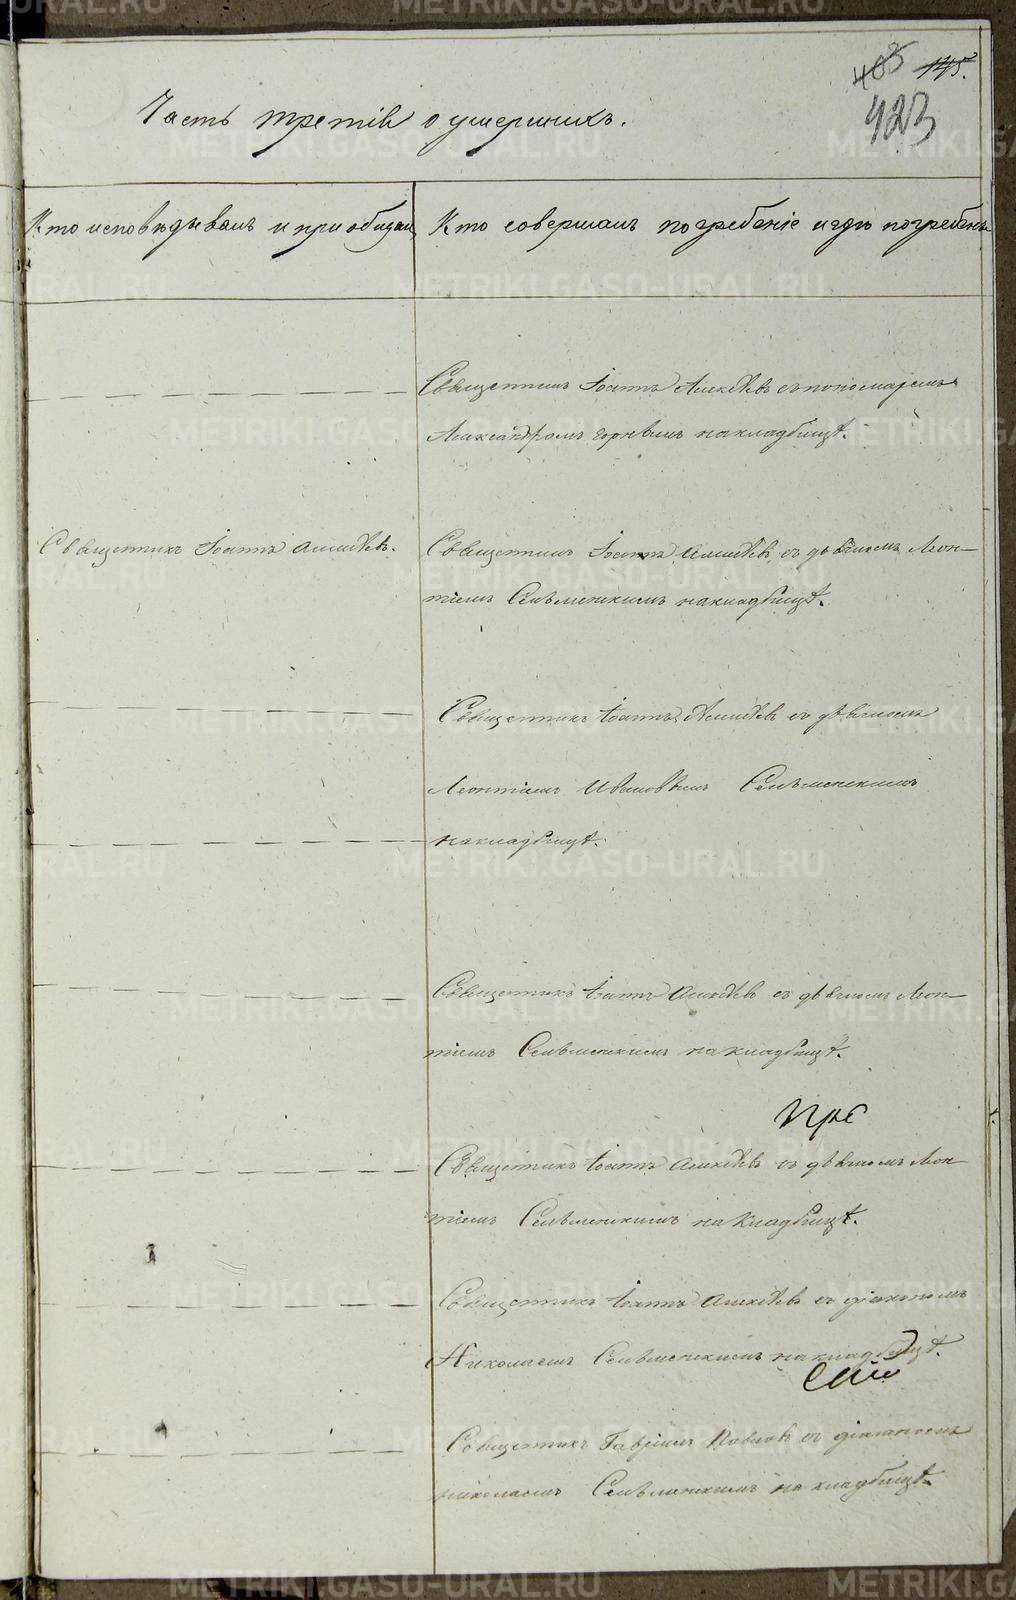 403 145.
423
Часть третія о умершихъ.
Кто исповѣдывалъ и приобщалъ
Кто совершалъ погребеніе и гдѣ погребенъ
Священникъ Іоаннъ Алексѣевъ съ пономаремъ
Александромъ на кладбищѣ.
Священникъ Іоаннъ Алексѣевъ.
Священникъ Іоаннъ Алексѣевъ съ дьячкомъ Леон-
тіемъ Селѣменскимъ на кладбищѣ.
Священникъ Іоаннъ Алексѣевъ съ дьячкомъ
Леонтіемъ Ивановымъ Селѣменскимъ
на кладбищѣ.
Священникъ Іоаннъ Алексѣевъ съ дьячкомъ Леон-
тіемъ Селѣменскимъ на кладбищѣ.
Священникъ Іоаннъ Алексѣевъ съ дьячкомъ Леон-
тіемъ Селѣменскимъ на кладбищѣ.
Священникъ Іоаннъ Алексѣевъ съ діакономъ
Николаемъ Селѣменскимъ на кладбищѣ.
Священникъ Гавріилъ Павловъ съ діакономъ
Николаемъ Селѣменскимъ на кладбищѣ.
METRIKI.GASO-URAL.RU